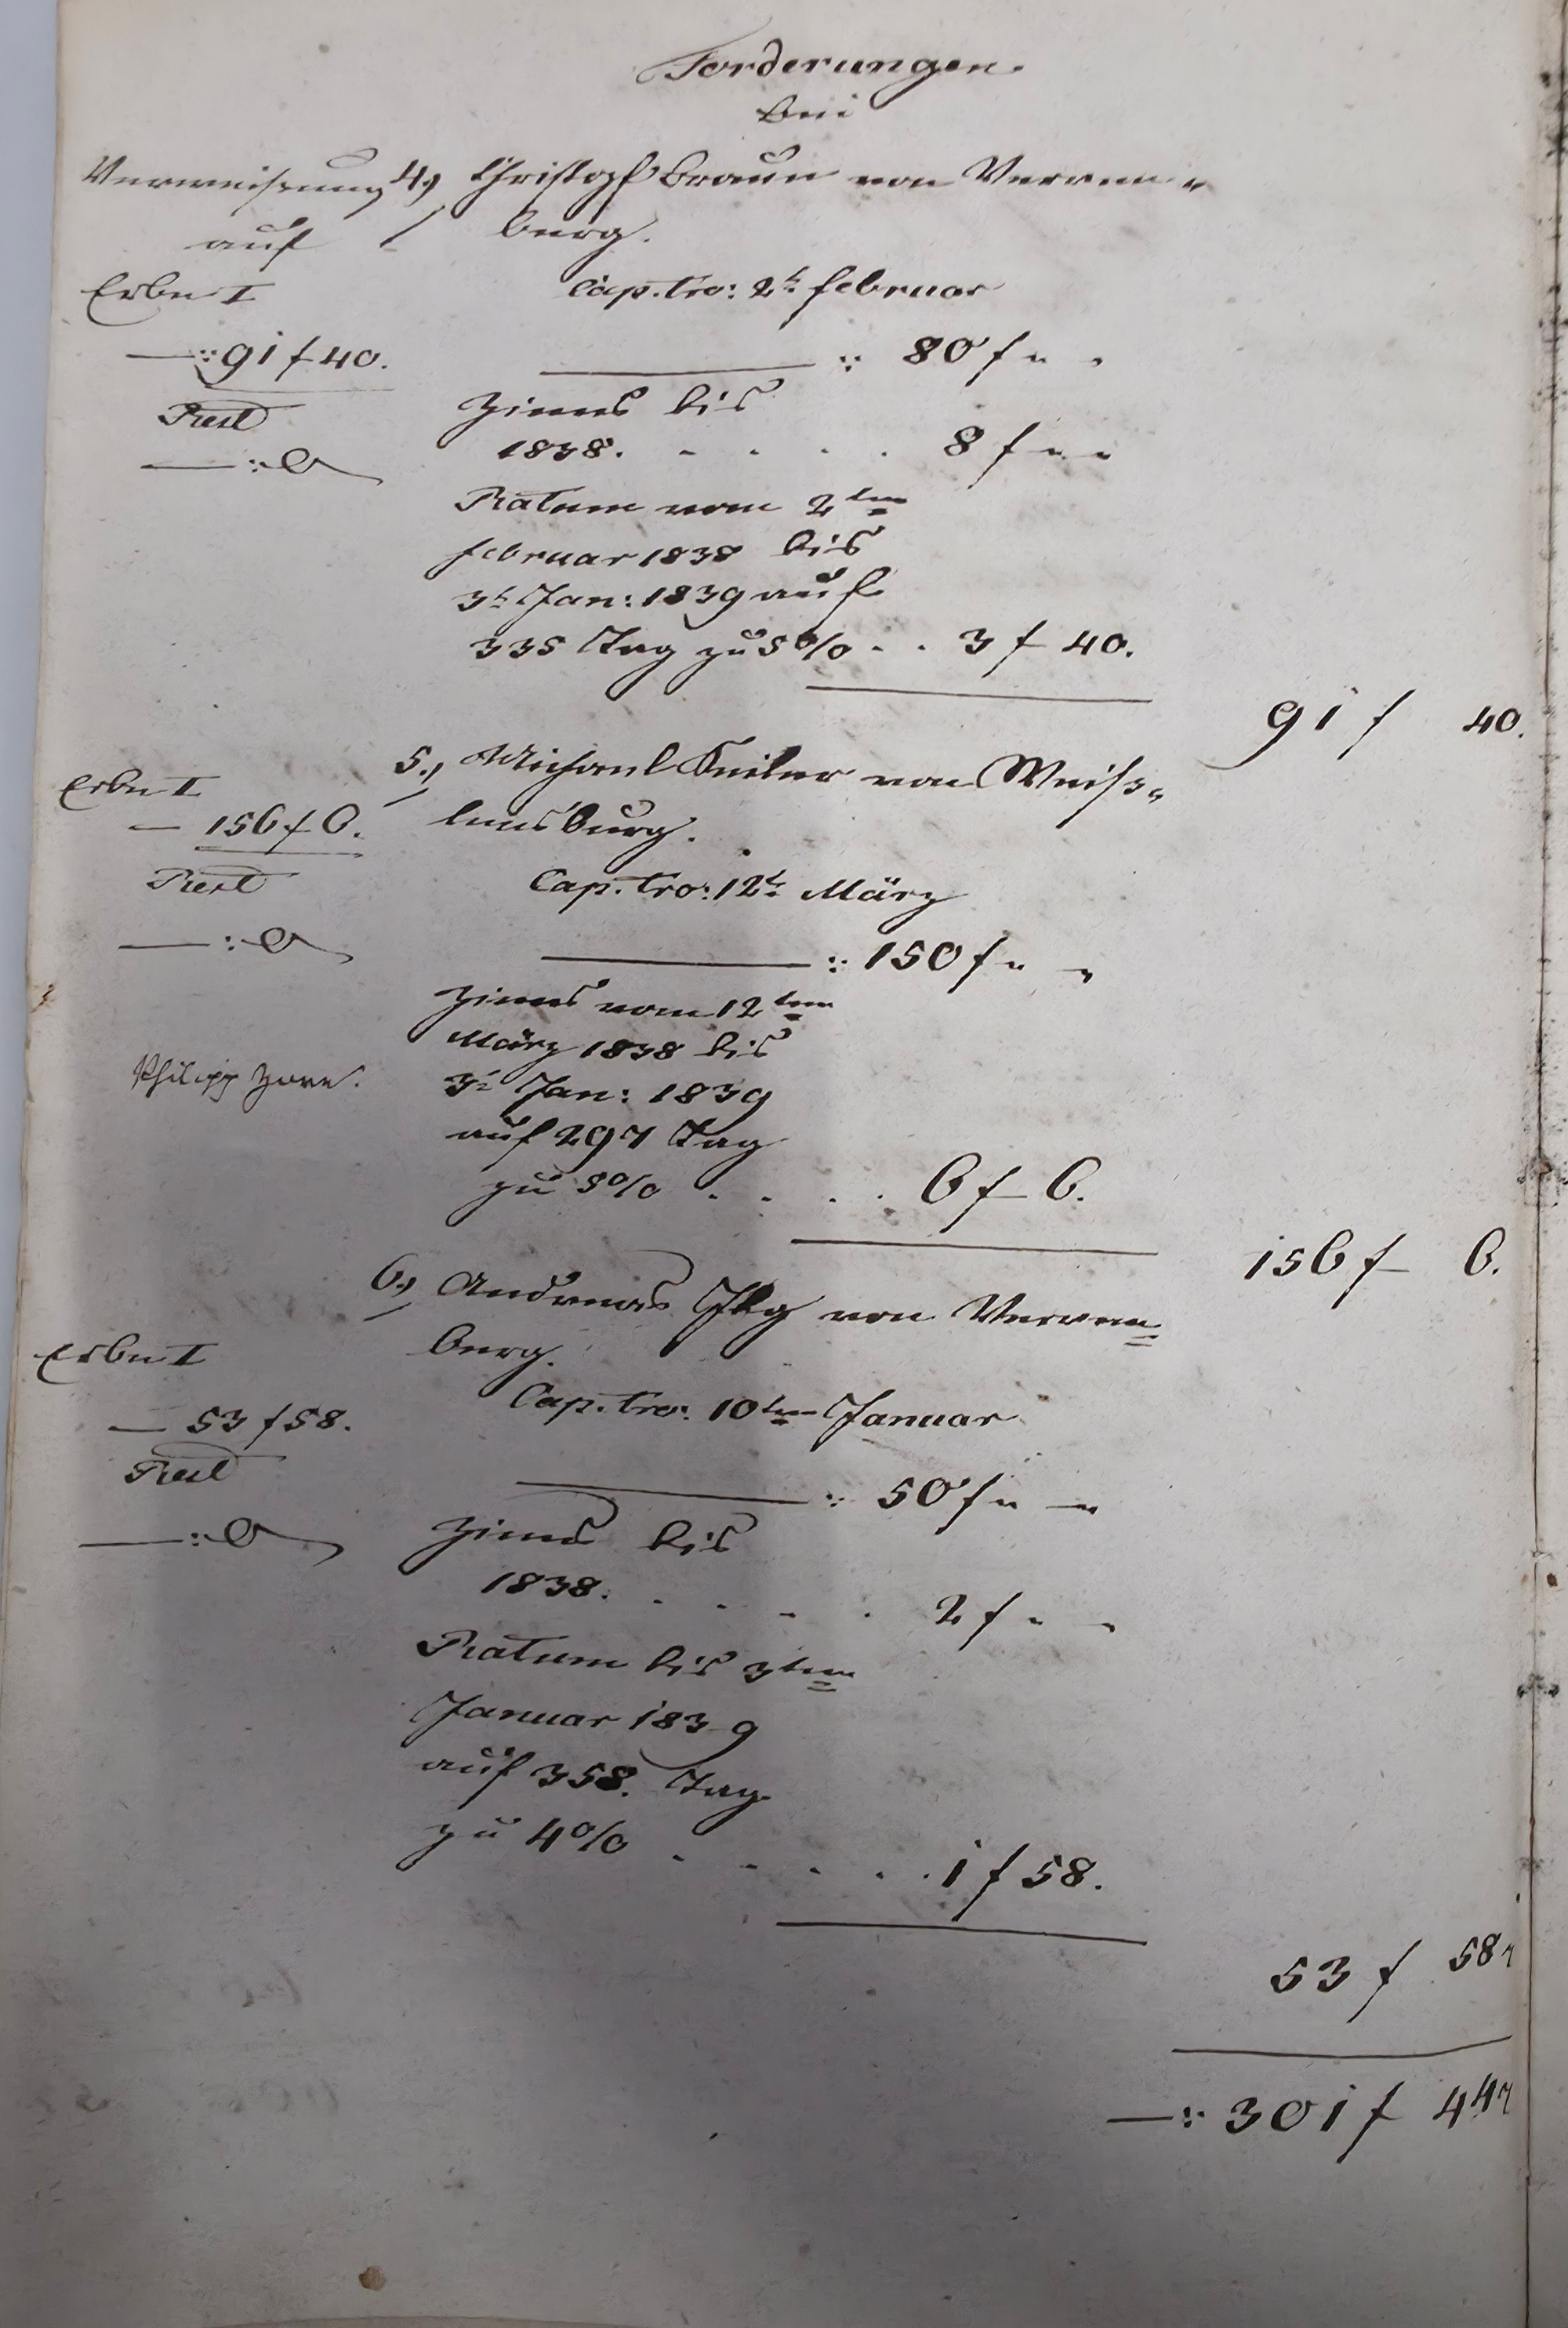 Forderungen.
bei
Verweisung
auf
Erbe I
—:: 91 f 40.
Rest
—:: 0
4.) Christoph Braun von Verren„
berg.
Cap. tro: 2t. Februar
—:: 80 f „ „
Zinns bis
1838. . . . . 8 f „ „
Ratum vom 2ten
Februar 1838 bis
3t. Jan: 1839 auf
335 Tag zu 5% . . 3 f 40.
91 f 40.
Erbe I
— 156 f 6.
Rest
—:: 0
5.) Michael von Weiss„
lensburg.
Cap. tro: 12t. März
—:: 150 f „ „
Zinns vom 12ten
März 1838 bis
3t. Jan: 1839
auf 297 Tag
zu 5% . . . . 6 f 6.
Philipp Zorn.
156 f 6.
Erbe I
— 53 f 58.
Rest
—:: 0
6.) Andreas Illg von Verren=
berg.
Cap. tro: 10ten Januar
—:: 50 f „ „
Zinns bis
1838. . . . . 2 f „ „
Ratum bis 3ten
Januar 1839
auf 358. Tag
zu 4% . . . . . 1 f 58.
53 f 58
—:: 301 f 44